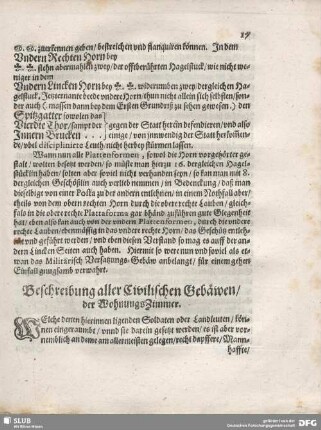 17
zuerkennen geben/ bestreichen vnd flanquiren können. In dem
Vndern Rechten Horn bey
stehn abermahlen zwey/ der offtberührten Hagelstuck/ wie nicht we-
niger in dem
Vndern Lincken Horn bey widerumben zwey/ dergleichen Ha-
gelstuck/ Jetzernante beede vndere Horn/ thun nicht allein sich selbsten/ son-
der auch (massen dann bey dem Ersten Grundriß zu sehen gewesen) den
Spitzgatter sowolen das
Vierdte Thor/ sampt der gegen der Statt herein defendieren/ vnd also
Innern Brucken einige/ von innwendig der Statt herkommen-
de/ vbel disciplinierte Leuth/ nicht herbey stürmen lassen.
Wann nun alle Plattenformen, sowol die Horn vorgehörter ge-
stalt/ wolten besetzt werden/ so müßte man hierzu 16. dergleichen Hagel-
stücklin haben/ solten aber soviel nicht verhanden seyn/ so kan man mit 8.
dergleichen Geschößlin auch vorlieb nemmen/ in Bedenckung/ daß man
dieselbige von einer Posta zu der andern entlehnen/ in einem Nothfall aber/
theils von dem obern rechten Horn durch die obere rechte Lauben/ gleich-
fals in die obere rechte Plattaforma gar bhänd zuführen gute Gelegenheit
hat/ eben also kan auch von der vndern Plattenformen, durch die vndere
rechte Lauben/ ebenmässig in das vndere rechte Horn/ das Geschütz entleh-
net vnd geführt werden/ vnd eben diesen Verstand so mag es auff der an-
dern Lincken Seiten auch haben. Hiermit so wer nun vnd soviel als et-
wan das Militärisch Versatzungs-Gebäw anbelangt/ für einem gehen
Einfall gnugsamb verwahrt.
Beschreibung aller Civilischen Gebäwen/
der Wohnungs Zimmer.
WElche deren hierinnen ligenden Soldaten oder Landleuten/ kön-
nen eingeraumbt/ vnnd sie darein gesetzt werden/ es ist aber vor-
nemblich an deme am allermeisten gelegen/ recht dapffere/ Mann-
haffte/
SLUB
Wir führen Wissen.
gefördert von der
Deutschen Forschungsgemeinschaft
DFG